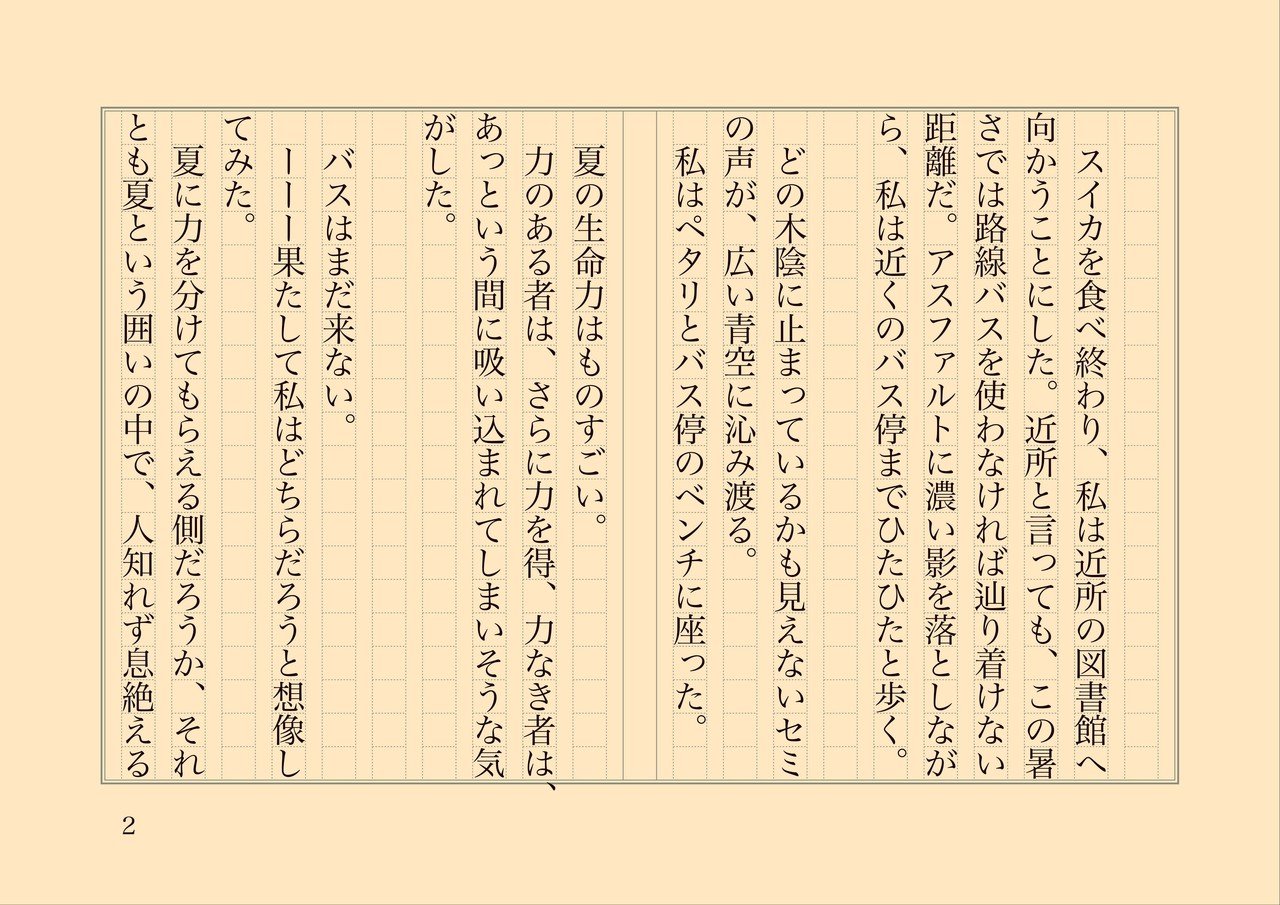 スイカを食べ終わり、私は近所の図書館へ
向かうことにした。近所と言っても、この暑
さでは路線バスを使わなければ辿り着けない
距離だ。アスファルトに濃い影を落としなが
ら、私は近くのバス停までひたひたと歩く。
どの木陰に止まっているかも見えないセミ
の声が、広い青空に沁み渡る。
私はペタリとバス停のベンチに座った。
夏の生命力はものすごい。
力のある者は、さらに力を得、力なき者は、
あっという間に吸い込まれてしまいそうな気
がした。
バスはまだ来ない。
ーーー果たして私はどちらだろうと想像し
てみた。
夏に力を分けてもらえる側だろうか、それ
とも夏という囲いの中で、人知れず息絶える
2